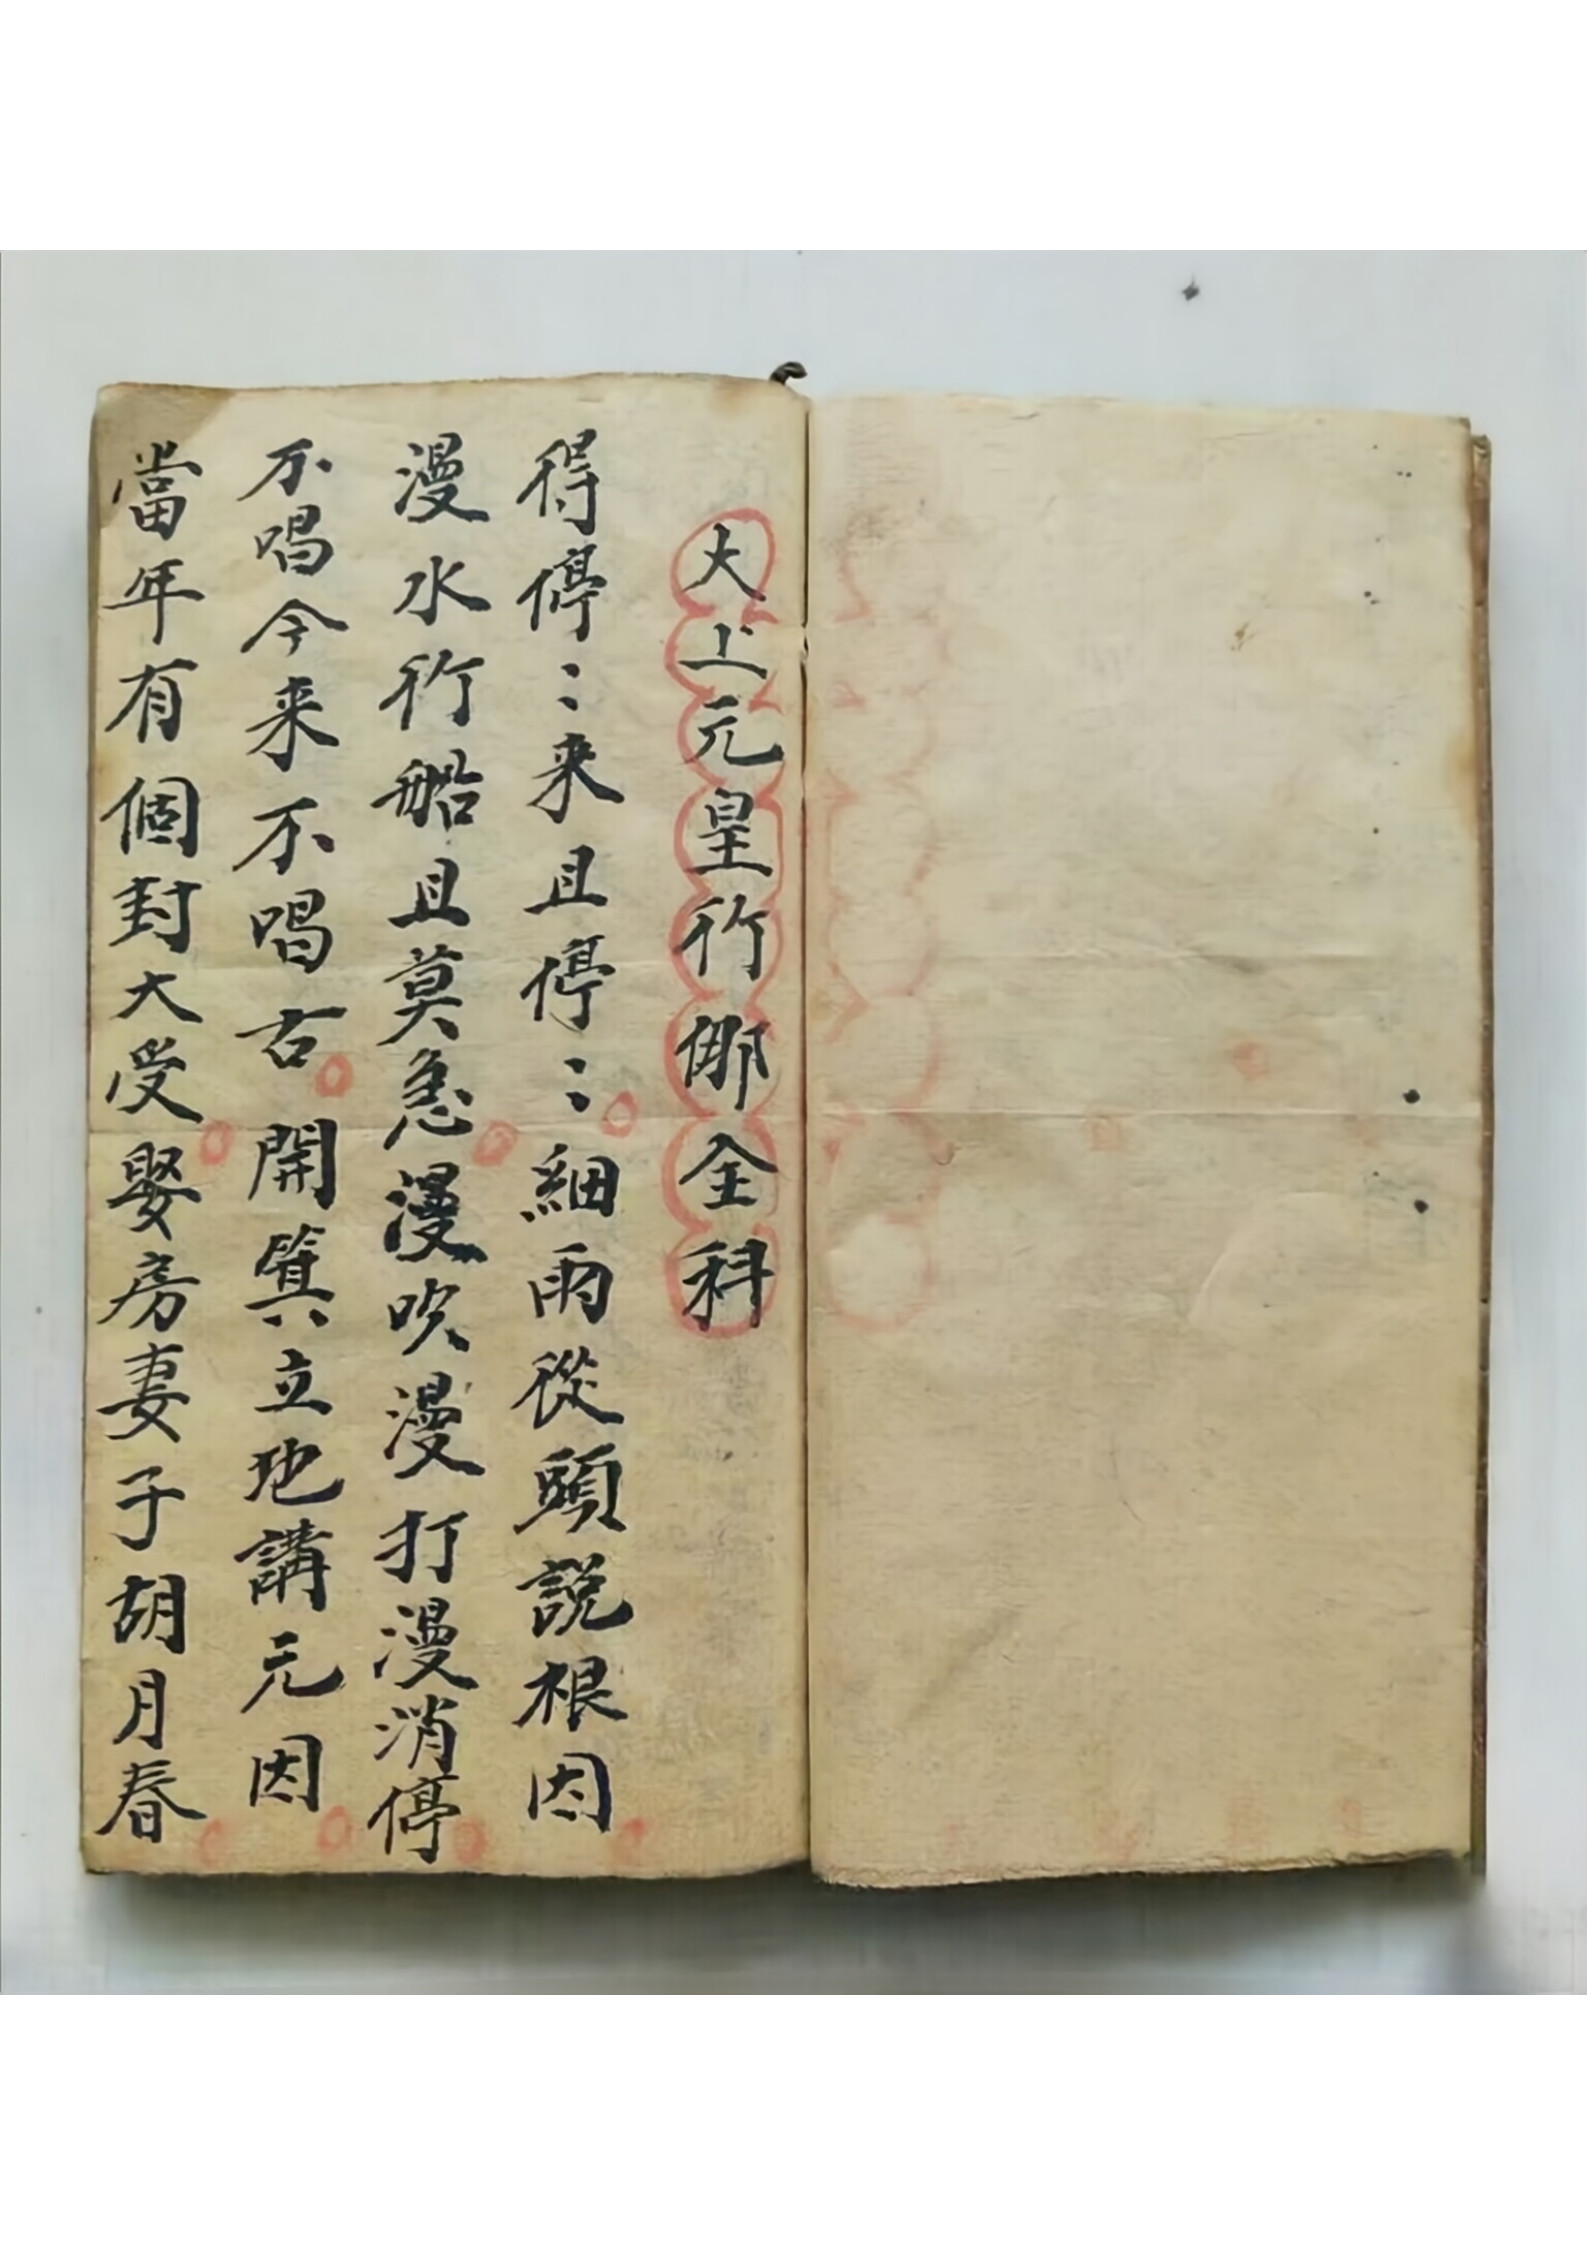 大上元皇行郍全科
得停〻来且停〻細雨從頭説根因
漫水行船且莫急漫吹漫打漫消停
不唱今来不唱古開箕立地講元因
當年有個封大受娶房妻子胡月春